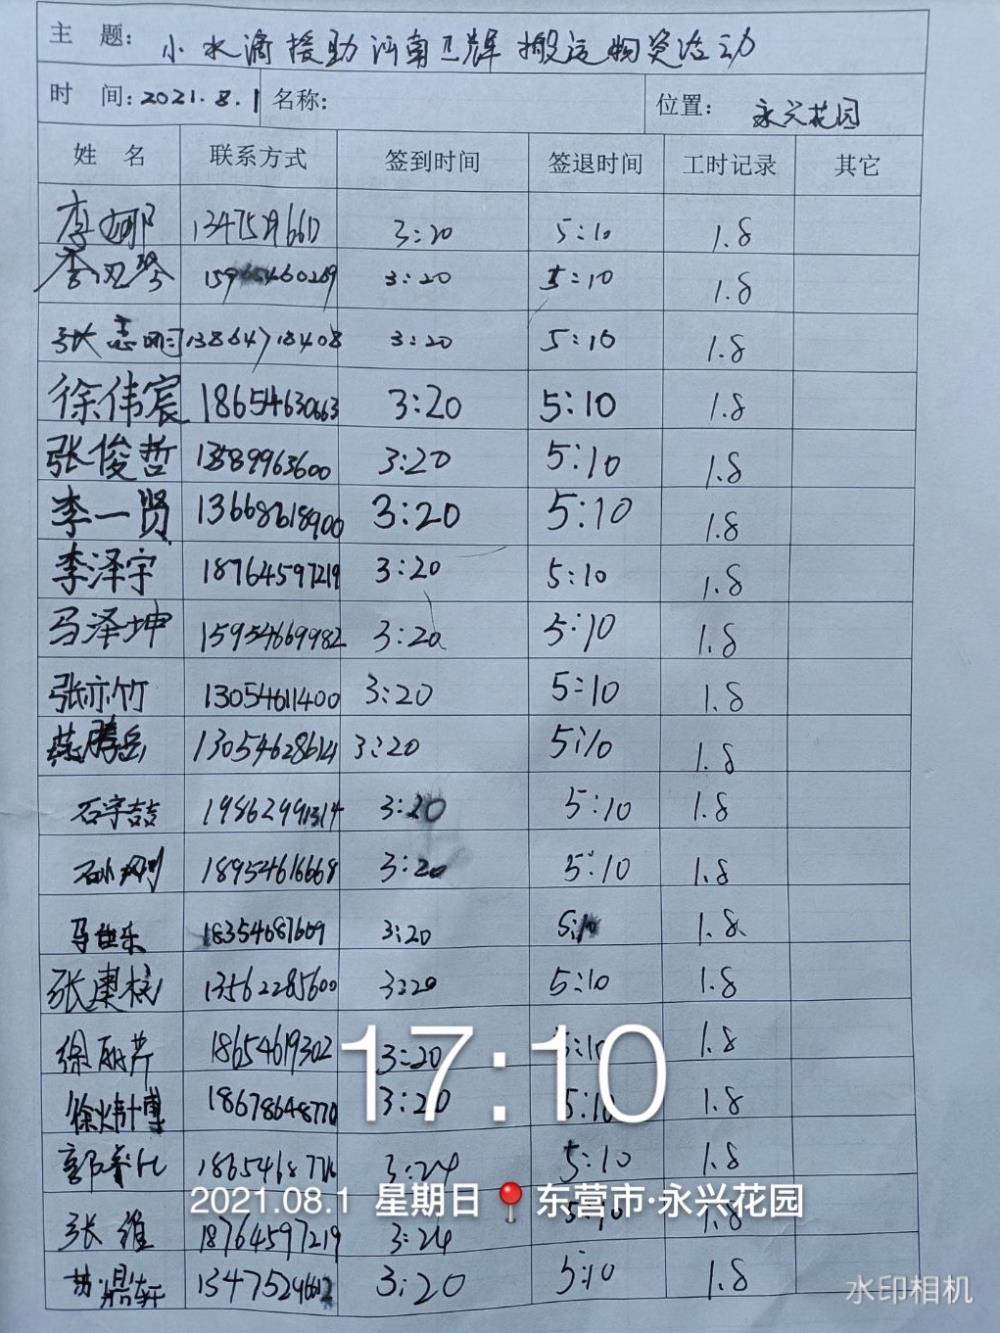 主 题: 小水滴援助河南卫辉搬运物资活动
时 间:2021.8.1 名称: 位置: 永兴花园
姓 名 联系方式 签到时间 签退时间 工时记录 其它
李娜 3:20 5:10 1.8
3:20 5:10 1.8
张志刚 13864718408 3:20 5:10 1.8
徐伟宸 18654630663 3:20 5:10 1.8
张俊哲 13589963600 3:20 5:10 1.8
李一贤 13668618900 3:20 5:10 1.8
李泽宇 18764597219 3:20 5:10 1.8
马泽坤 15954669982 3:20 5:10 1.8
张亦竹 13054611400 3:20 5:10 1.8
3:20 5:10 1.8
石宇喆 3:20 5:10 1.8
18954616668 3:20 5:10 1.8
18354687609 3:20 5:10 1.8
13562285600 3:20 5:10 1.8
18654619302 3:20 5:10 1.8
18678648770 3:20 5:10 1.8
3:24 5:10 1.8
张维 18764597219 3:24 5:10 1.8
3:20 5:10 1.8
17:10
2021.08.1 星期日 东营市·永兴花园
水印相机